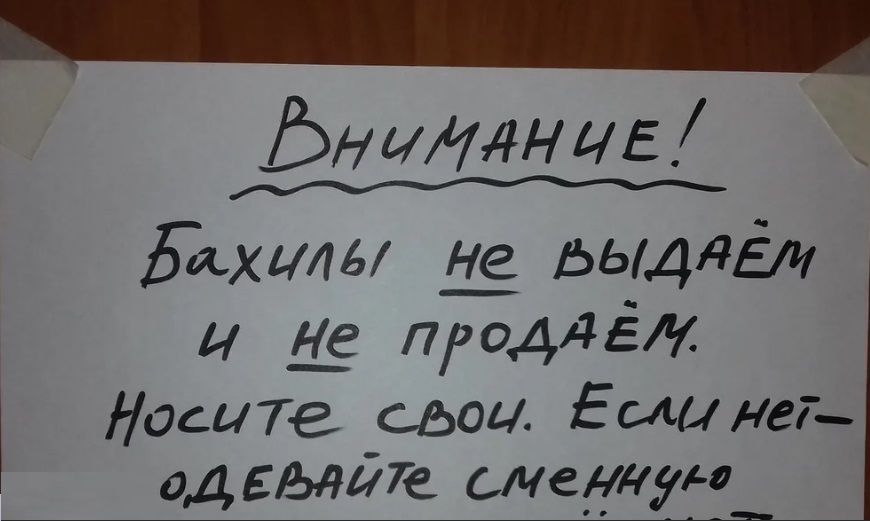 Внимание!
Бахилы не выдаём
и не продаём.
Носите свои. Если нет–
одевайте сменную